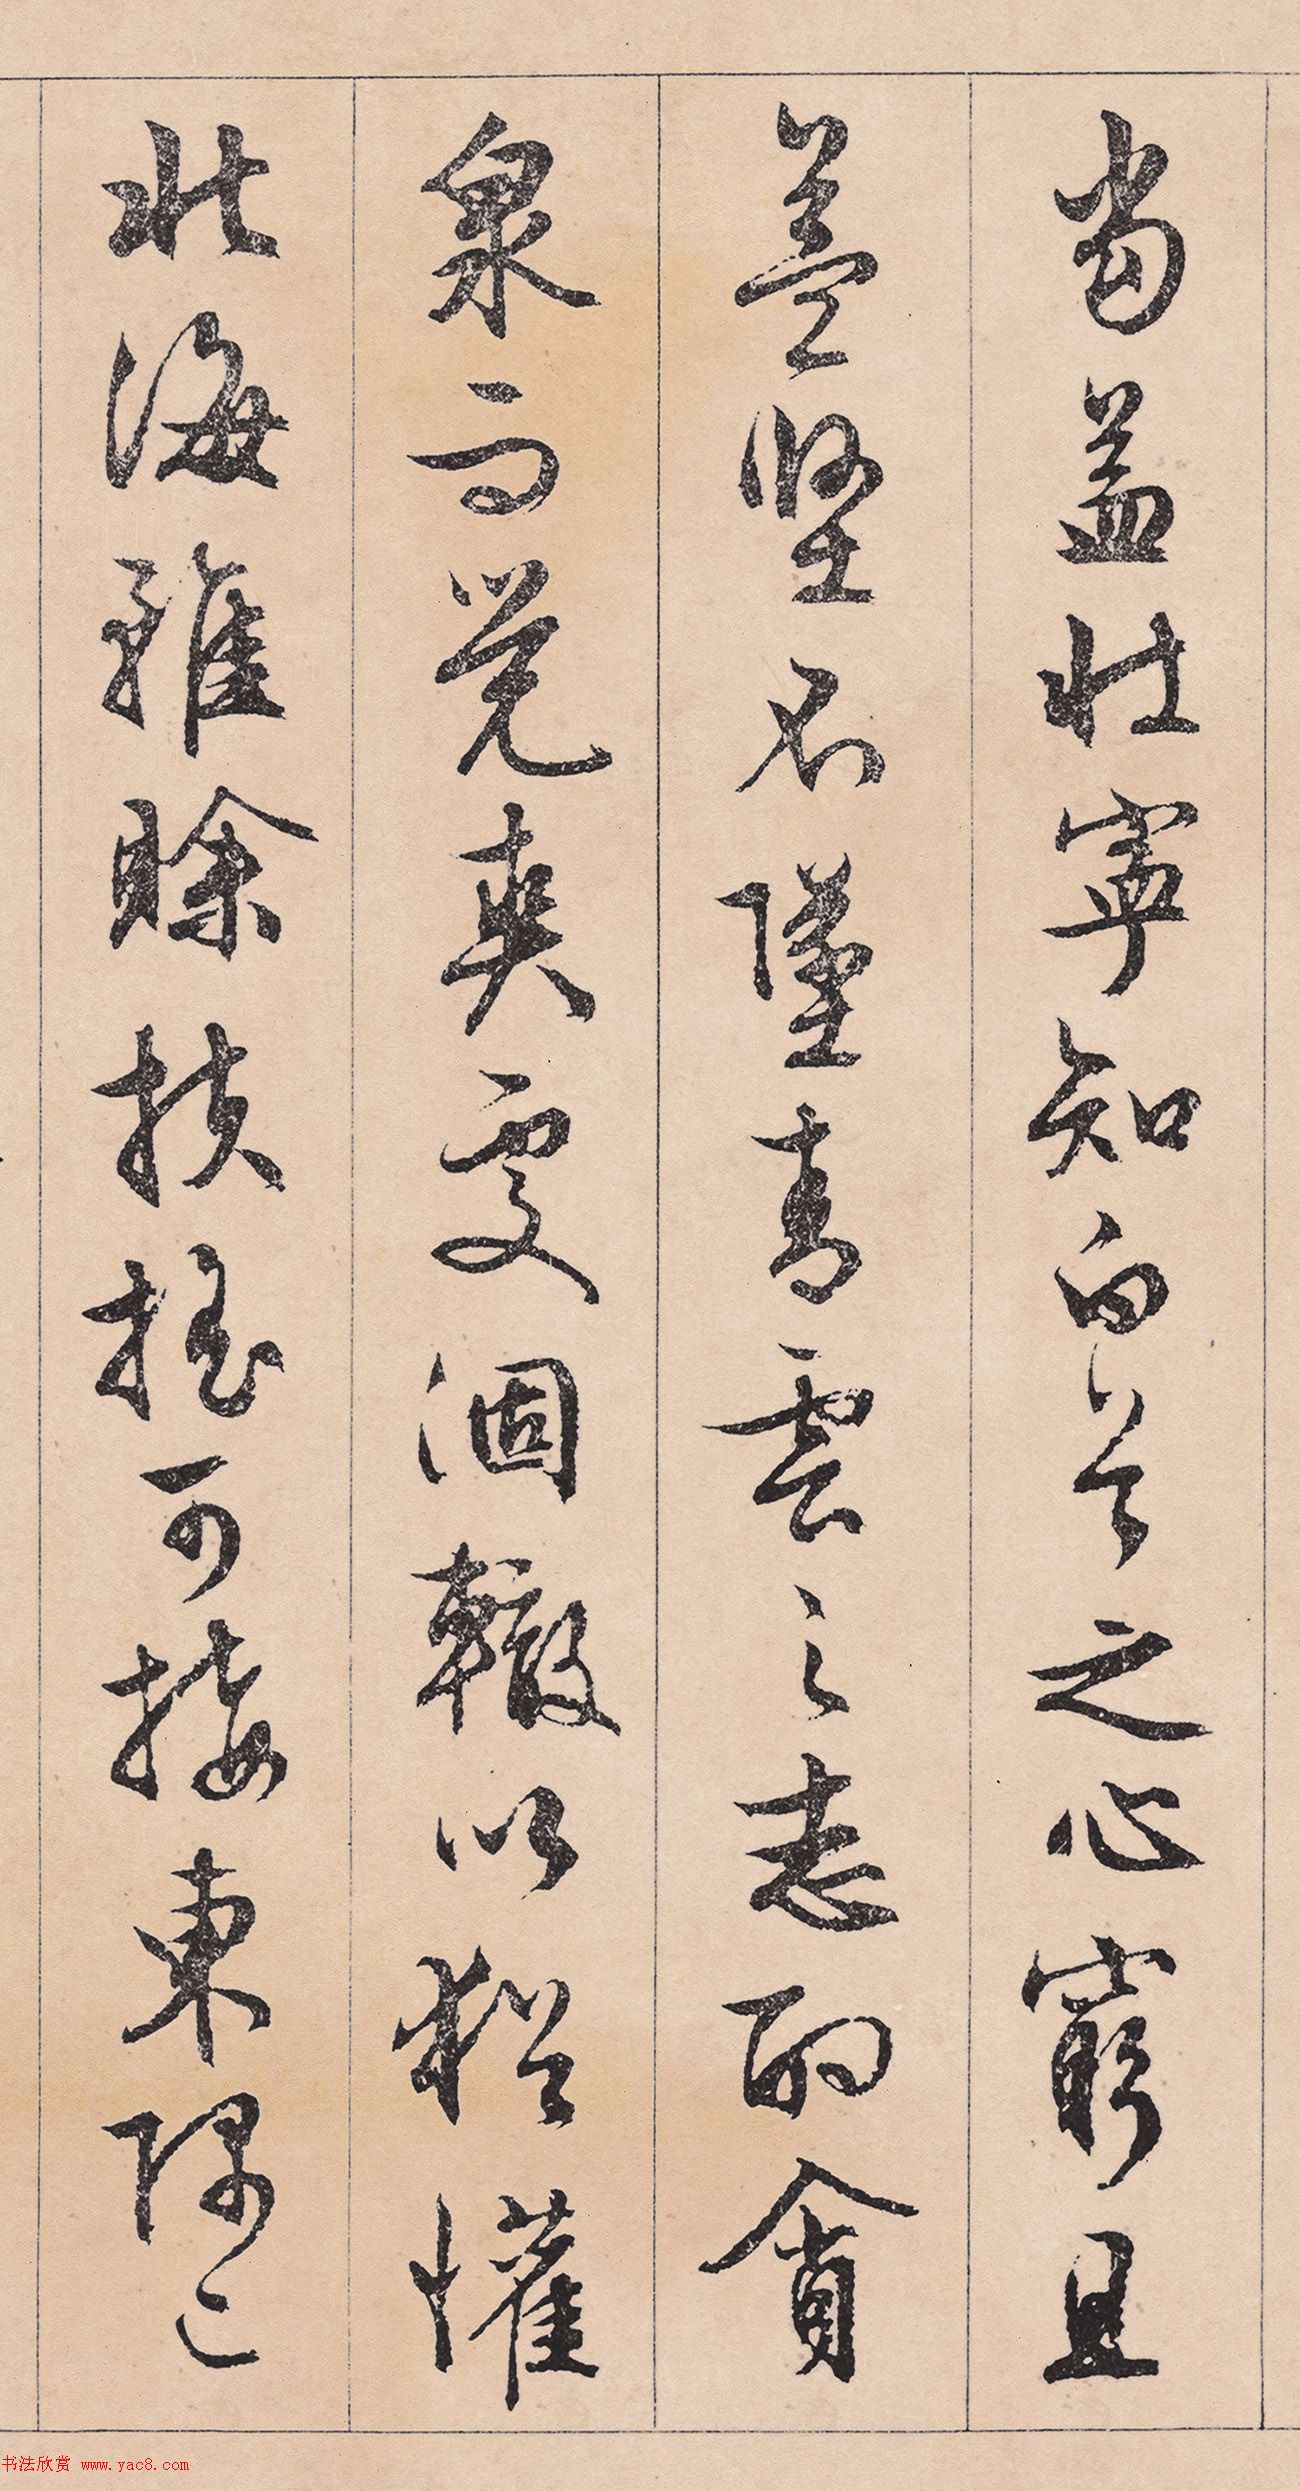 當益壯寧知白首之心窮且
益堅不墜青雲之志酌貪
泉而覺爽處涸轍以猶懽
北海雖賒扶搖可接東隅已
书法欣赏 www.yac8.com